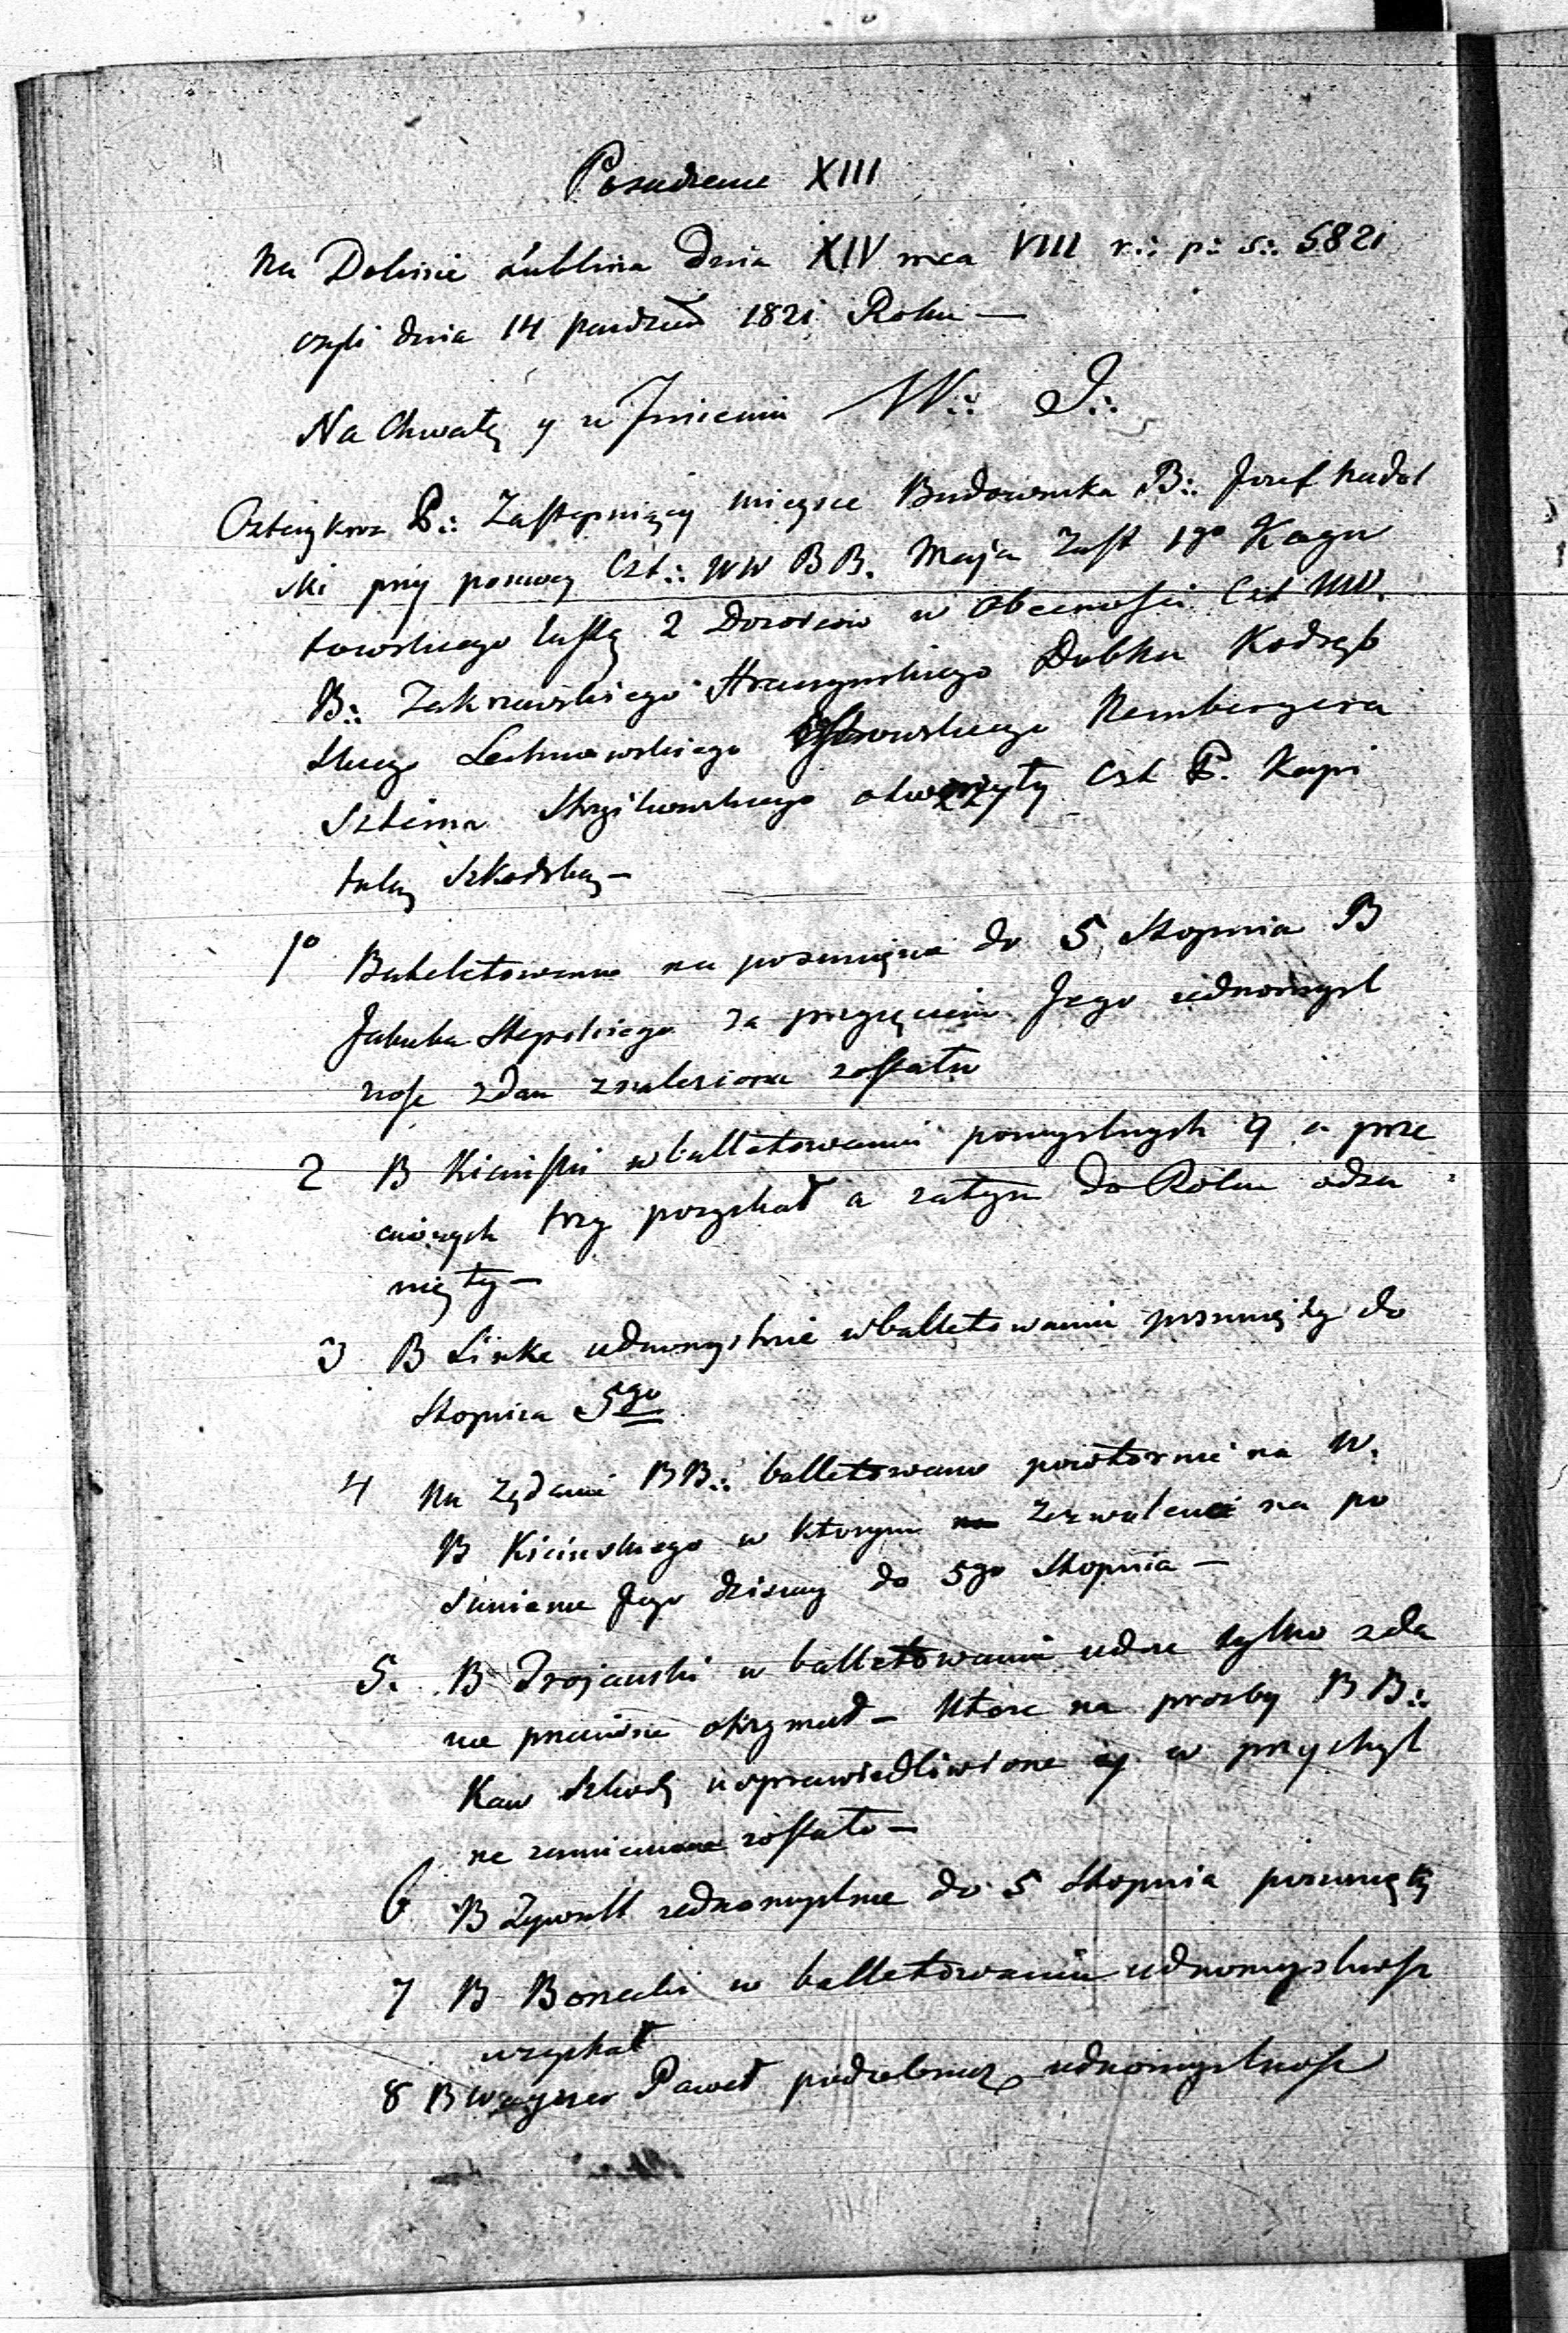 Posiedzenie XIII
Na Dolinie Lublina Dnia XIV mca VIII r.: p.: s.: 5821
czyli dnia 14 paudzier 1821 Roku —
Na Chwałę y w Jmieniu W.: J.:
Zastępuiący mieysce Budownika B.: Jozef Nadol
ski przy pomocy Czt.: WW BB. Maja Zast 1go Kagu
towskiego 2 Dozorcow w Obecnosci Czt WW.
B.: Zakrzewskiego Dubka Kodręb
skiego Lechnowskiego Nembergera
Sztima Skrzikowskiego otworzyły Czt P. Kapi
tułę Szkodską —
1o Baletowanie na posunięcie do 5 Stopnia B
Jakuba za przyjęciem Jego iednomysl
nosc zdan znaleziona została
2 B Kicinski w balletowaniu pomyslnych 9 a prze
ciwnych trzy pozyskał a zatym do Roku odsu
nięty —
3 B Linke iednomyslnie w balletowaniu posunięty do
Stopnia 5go
4 Na Żądanie BB.: balletowano powtornie na W.
B Kicinskiego w ktorym zezwolenie na po
sunienie Jego do 5go Stopnia —
5. B Trojanski w balletowaniu iedne tylko zda
nie przeciwne otrzymał — Ktore na prozby BB.:
Kaw Szkocj usprawiedliwione y w przychyl
ne zamienione zostało —
6 B iednomyslnie do 5 Stopnia posunięty
7 B Bonecki w balletowaniu iednomyslnosc
uzyskał
8 B Wagner Paweł podobnież iednomyslnosc